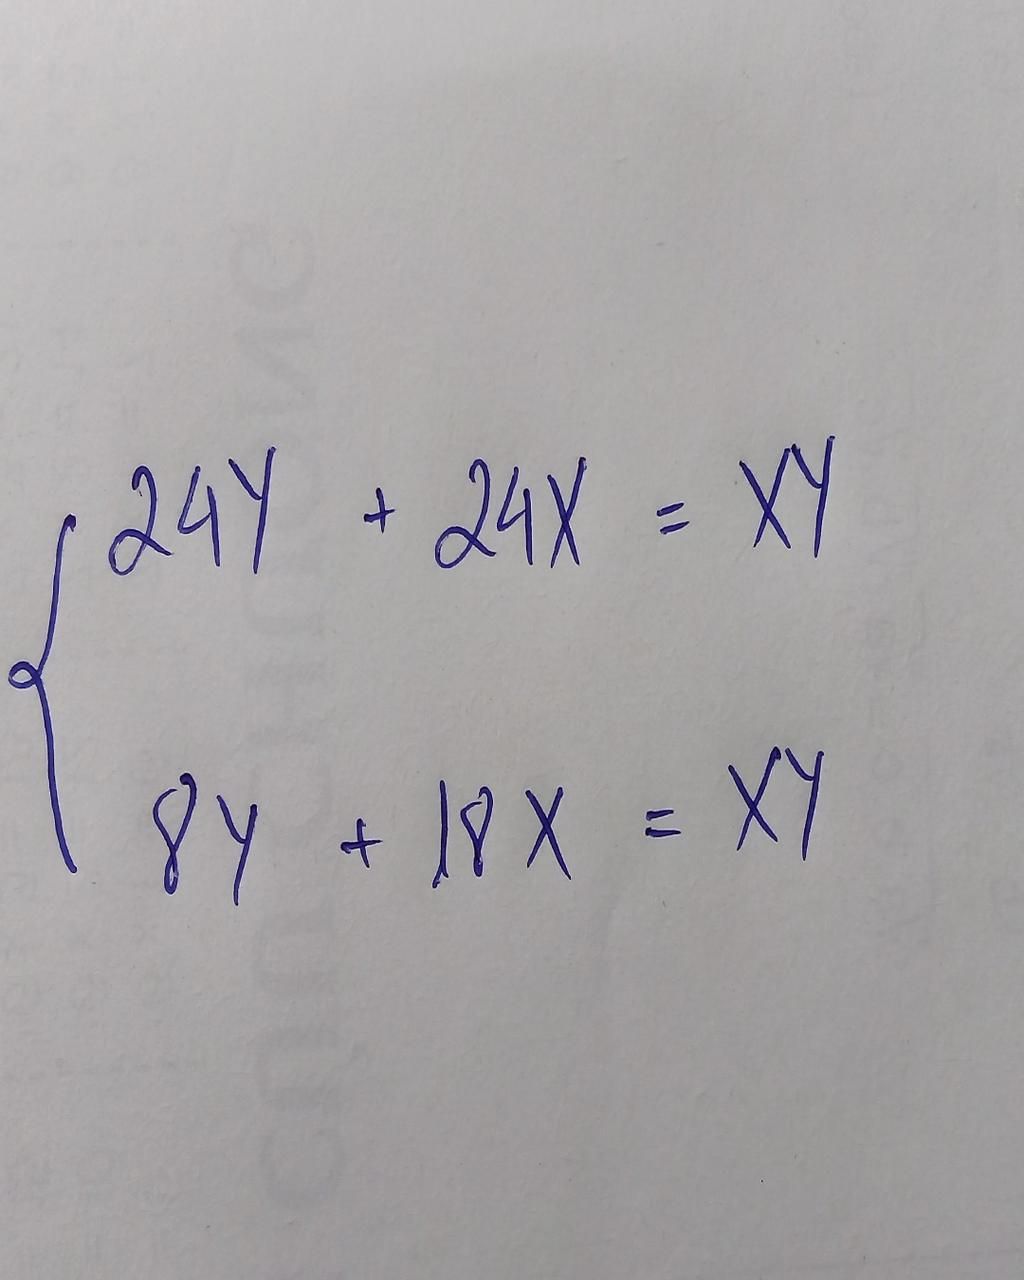 24Y + 24X = XY
8Y + 18X = XY